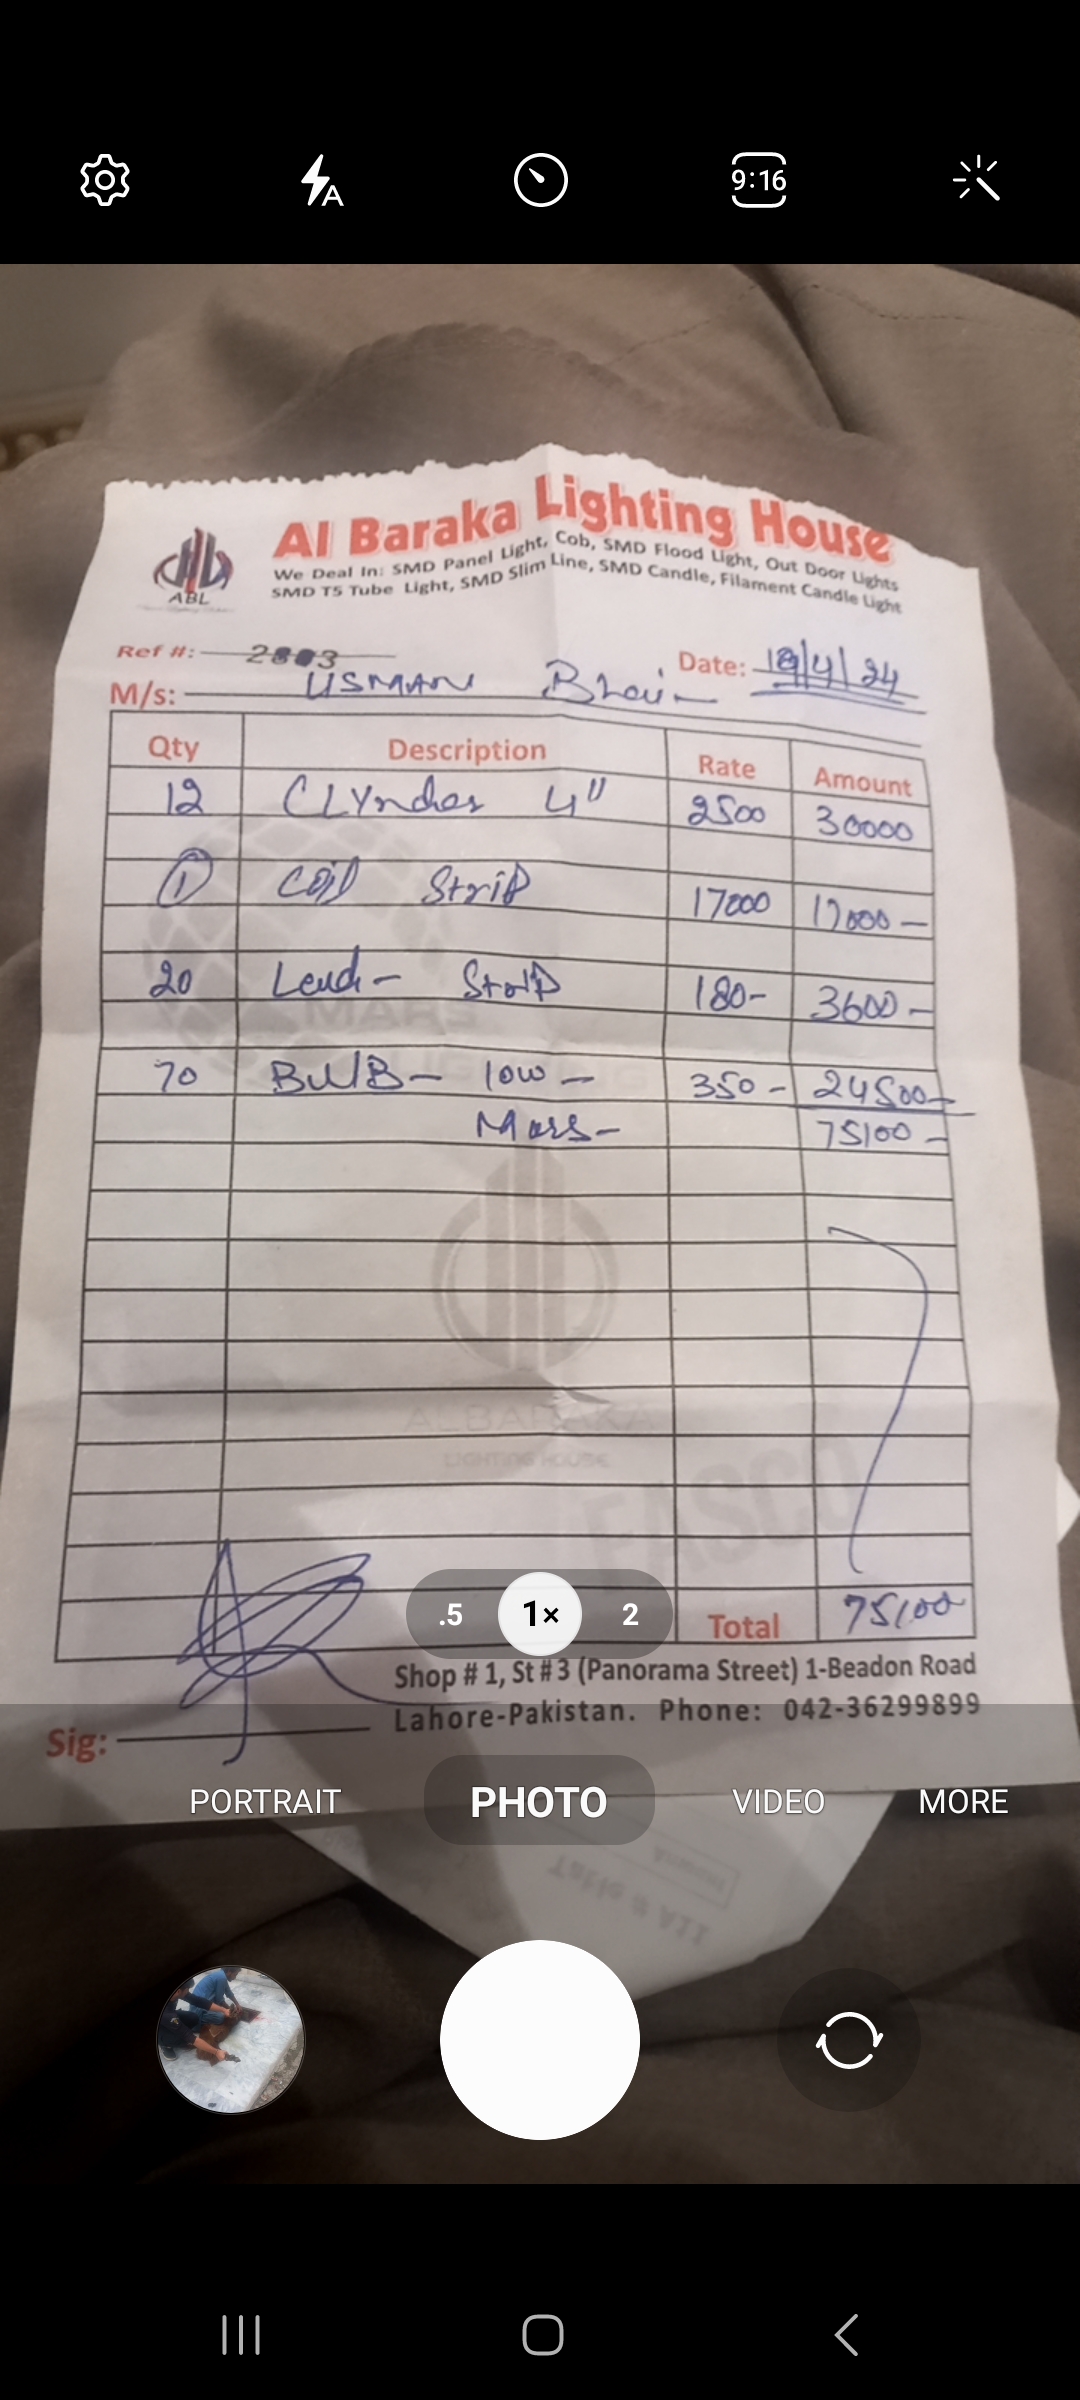 9:16
Al Baraka Lighting House
We Deal In: SMD Panel Light, Cob, SMD Flood Light, Out Door Lights
SMD T5 Tube Light, SMD Slim Line, SMD Candle, Filament Candle Light
ABL
Ref #: 2803
Date: 18/4/24
M/s: USMAN Bhai
Qty Description Rate Amount
12 CLYnder 4" 2500 30000
1 Coil Strip 17000 17000 -
20 Lead - Strip 180- 3600 -
MARS
70 BULB - 10W - 350 - 24500 -
Mars - 75100 -
ALBARAKA
LIGHTING HOUSE
FASCO
.5 1× 2
Total 75100
Shop # 1, St # 3 (Panorama Street) 1-Beadon Road
Lahore-Pakistan. Phone: 042-36299899
Sig:
PORTRAIT PHOTO VIDEO MORE
Table # A11